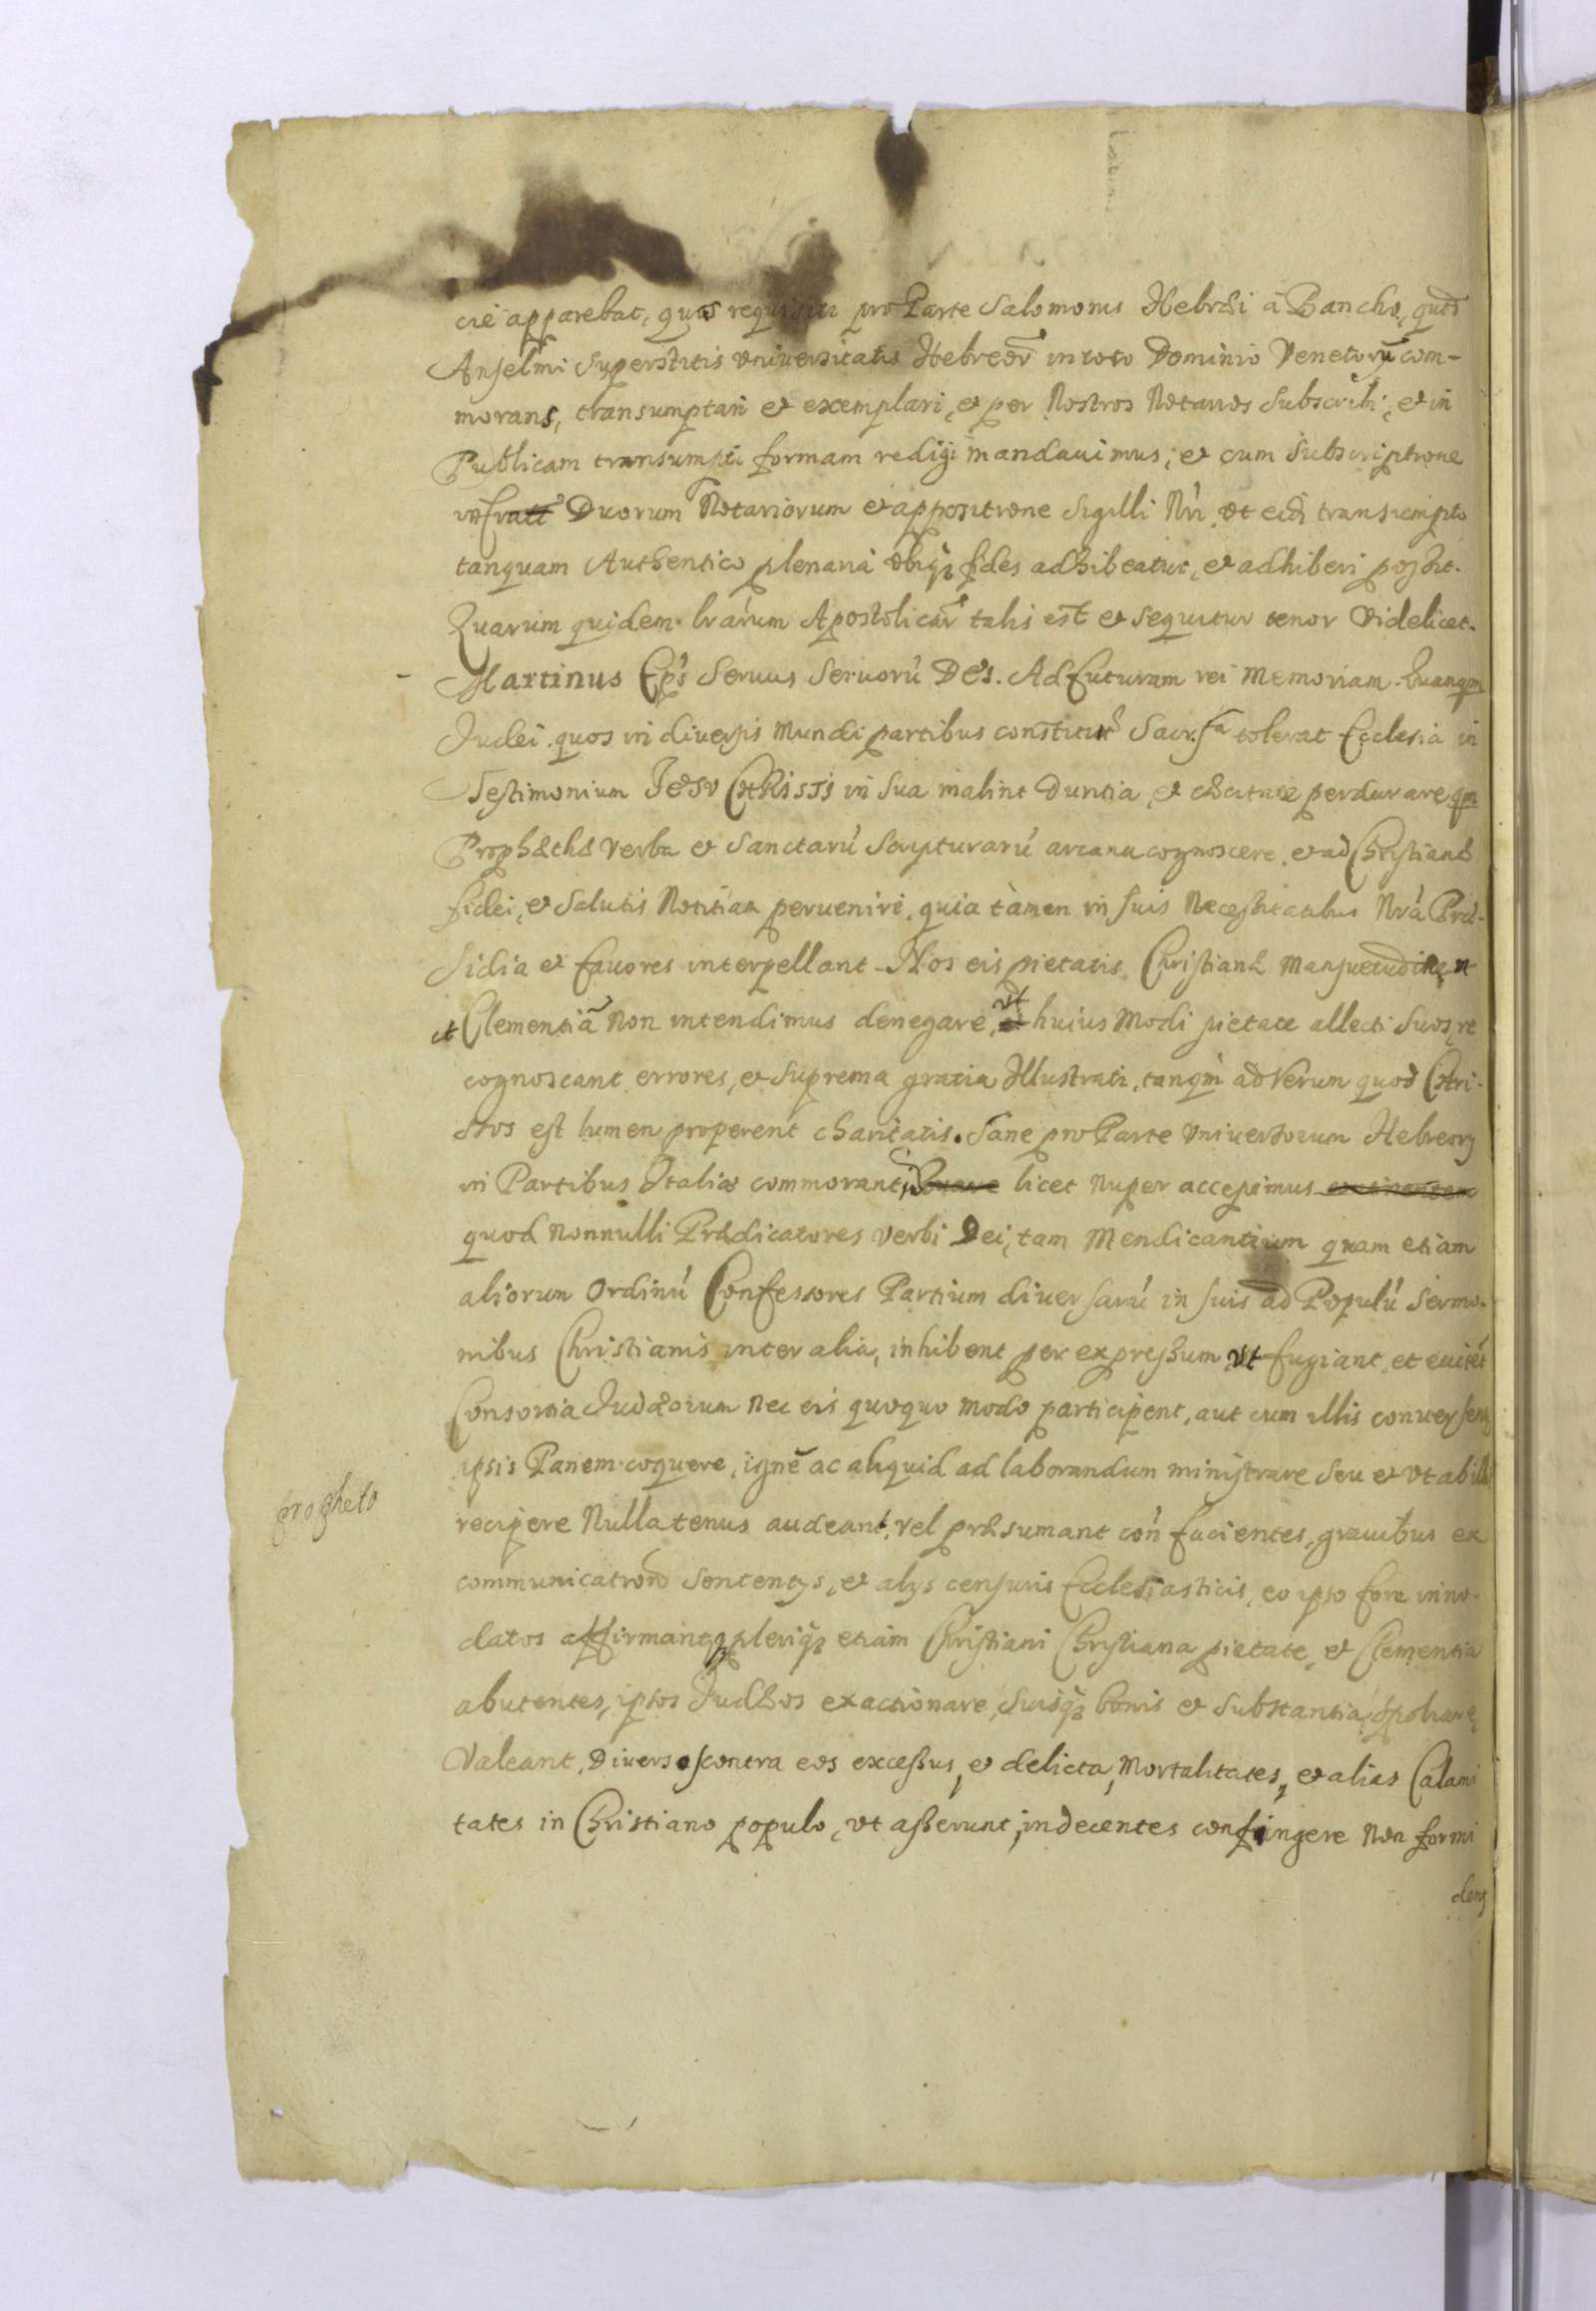 cie apparebat, quas requisiti pro Parte Salomonis Hebræi à Bancho, quōd
Anselmi superstitis vniuersitatis Hebreor̃ in toto Dominio Venetorũ com-
morans, transumptari et exemplari, et per Nostros Notarios subscribi, et in
Publicam transumpti formam redigi mandauimus; et cum subscriptione
infratt̃ Duorum Notariorum et appositione sigilli Nr̃i, vt eid̃ transumpto
tanquam Authentico plenaria vbiq3 fides adhibeatur, et adhiberi possit.
Quarum quidem lrárum Apostolicar̃ talis est et sequitur tenor Videlicet.
- Martinus Ep̃s Seruus Seruorũ Dei. Ad futuram rei Memoriam. Quanqm̃
Judei quos in diuersis Mundi partibus constitutæ Sacr.sa tolerat Ecclesia in
Testimonium Jesv Christi in sua malint duritia, et cæcitate perdurare qm̃
Prophæthæ verba et Sanctarú Scripturarú arcana cognoscere, et ad Christianæ
fidei, et salutis Notitiam peruenire, quia tàmen in suis Necessitatibus Nrã Præ-
sidia et fauores interpellant Nos eis pietatis Christianæ Mansuetudinem
et Clementiã Non intendimus denegare, vt huius Modi pietate allecti suos re
cognoscant errores, et suprema gratia Illustrati, tanqm̀ ad Verum quod Chri-
stvs est lumen properent charitatis. Sane pro Parte vniuersorum Hebreorũ
in Partibus Italiæ commorantiũ licet nuper accepimus
quod Nonnulli Prædicatores verbi Dei, tam Mendicantium quam etiam
aliorum Ordinú Confessores Partium diuersarú in suis ad Populú Sermo-
nibus Christianis inter alia, inhibent per expressum vt fugiant, et euitẽt
Consortia Judæorum Nec eis quoquo Modo participent, aut cum illis conuersent
ipsis Panem coquere, ignẽ ac aliquid ad laborandum ministrare seu et vt ab illis
progheto
recipere Nullatenus audeant vel præsumant cóñ facientes, grauibus ex
communication̄ sententijs, et alijs censuris Ecclesiasticis, eo ipso fore inno-
datos affirmant, pleriq3 etiam Christiani Christiana pietate, et Clementia
abutentes, ipsos Judæos exactionare, suisq3 bonis et substantia spoliare
Valeant, Diversos contra eos excessus, et delicta, Mortalitates, et alias Calami
tates in Christiano populo, vt asserunt, indecentes confingere Non formi
dent